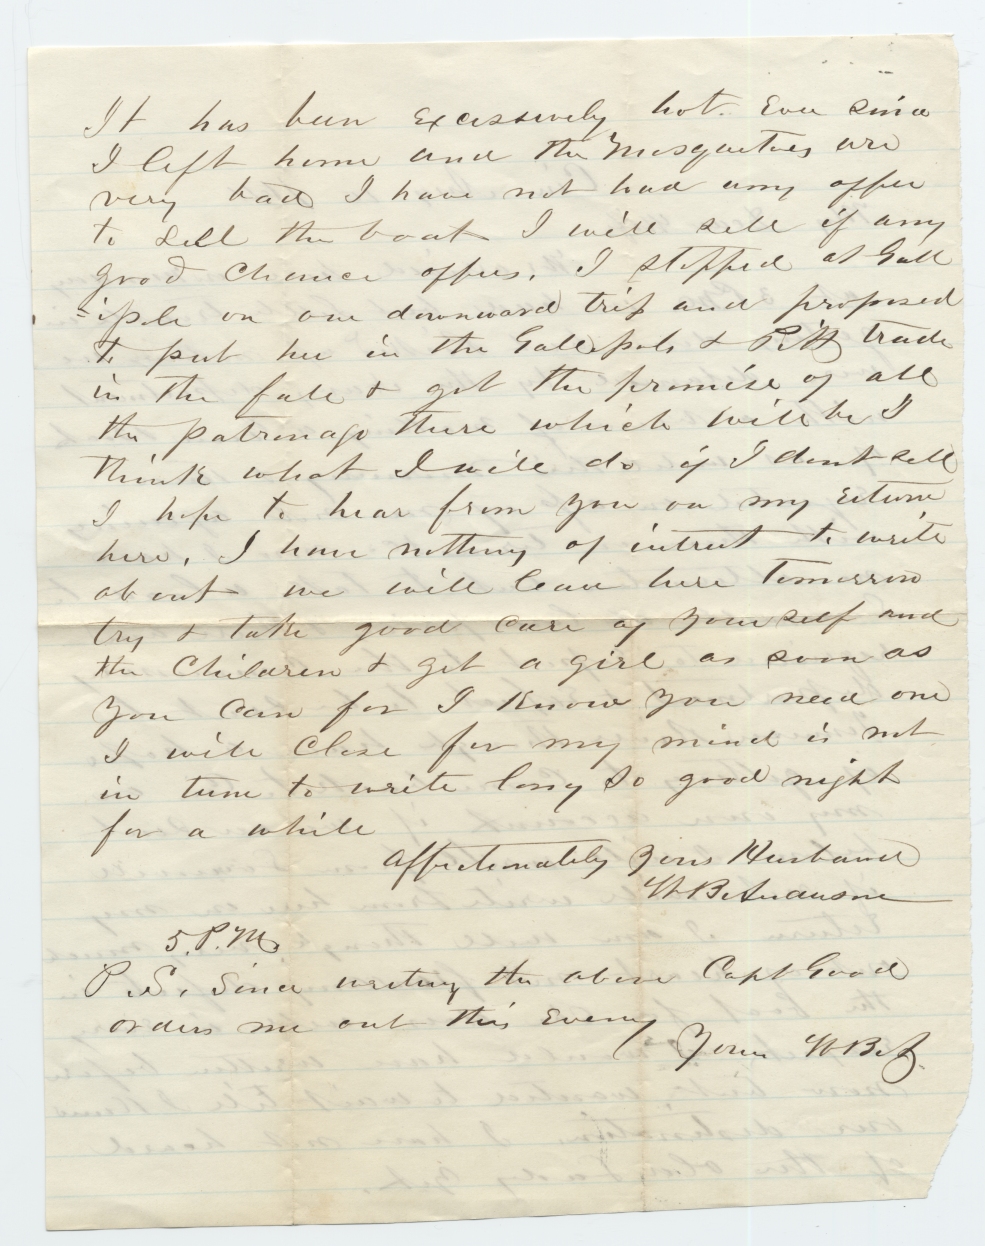 It has been excessively hot. Ever since
I left home and the Mosquetoes are
very bad I have not had any offer
to sell the boat I will sell if any
good chance offers. I stopped at Gall
=iple on our downward trip and proposed
to put her in the Gallipols & Pitt trade
in the fall & got the promise of all
the patronage there which will be I
think what I will do if I dont sell
I hope to hear from you on my return
here. I have nothing of intrest to write
about we will leave here Tomorrow
try & take good care of your self and
the Children & get a girl as soon as
you can for I Know you need one
I will Close for my mind is not
in tune to write long So good night
for a while
Affectionately Yours Husband
W B Anderson
5. P.M.
P.S. Since writing the above Capt Good
orders me out this Eveng
Yours W B A.